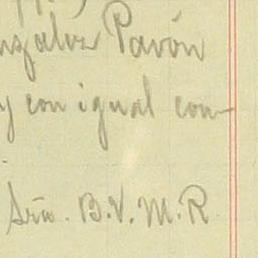 nzalez Pavón
y con igual con-
Sria. B.V.M.R